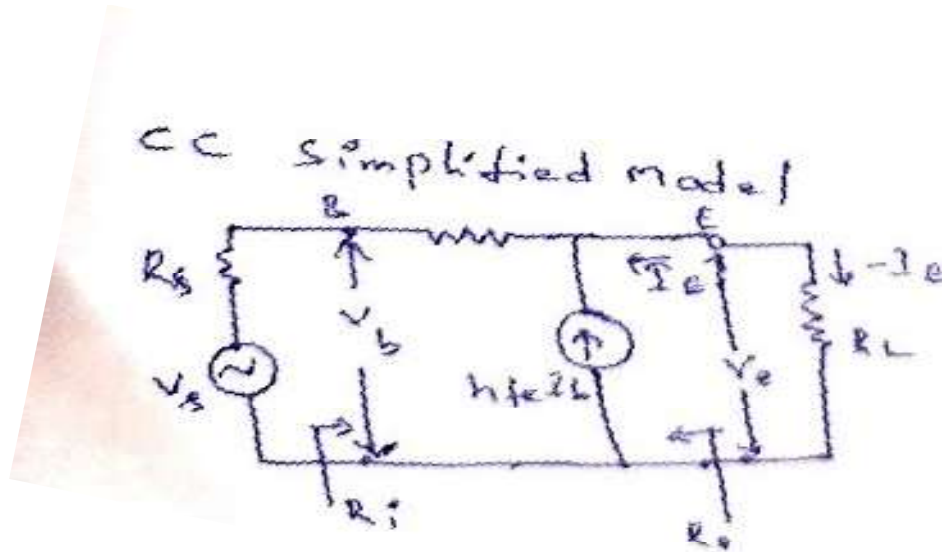 CC Simplified Model
B
E
Rs
Vs
Vb
hfeIb
Ie
-Ie
Ve
RL
Ri
Ro